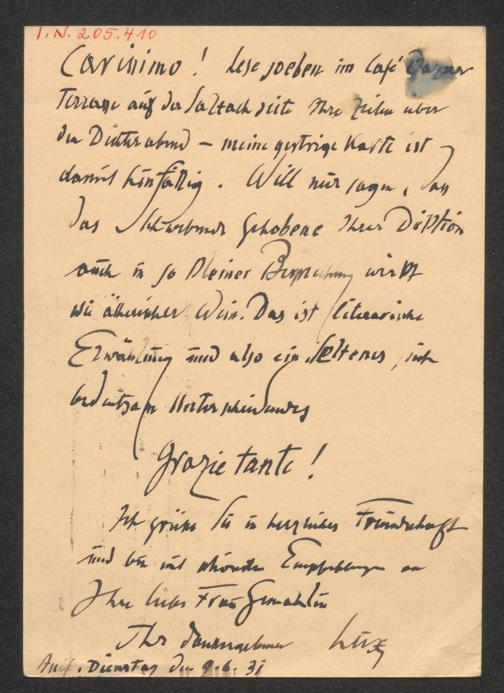 I.N. 205.410
Carissimo! Lese soeben im Café Bazar
Terrasse auf der Salzach seite Ihre Zeilen über
den Dichterabend – meine gestrige Karte ist
damit hinfällig. Will nur sagen, dass
das Gehobene Ihrer Diktion
auch in so kleiner Besprechung wirkt
wie Wein. Das ist literarische
Erwähnung und also ein Seltenes, sich
bedeutsam Unterscheidendes
Grazie tante!
Ich grüsse Sie in herzlicher Freundschaft
und bin mit Empfehlungen an
Ihre liebe Frau Gemahlin
Ihr
Dienstag den 9.6.31